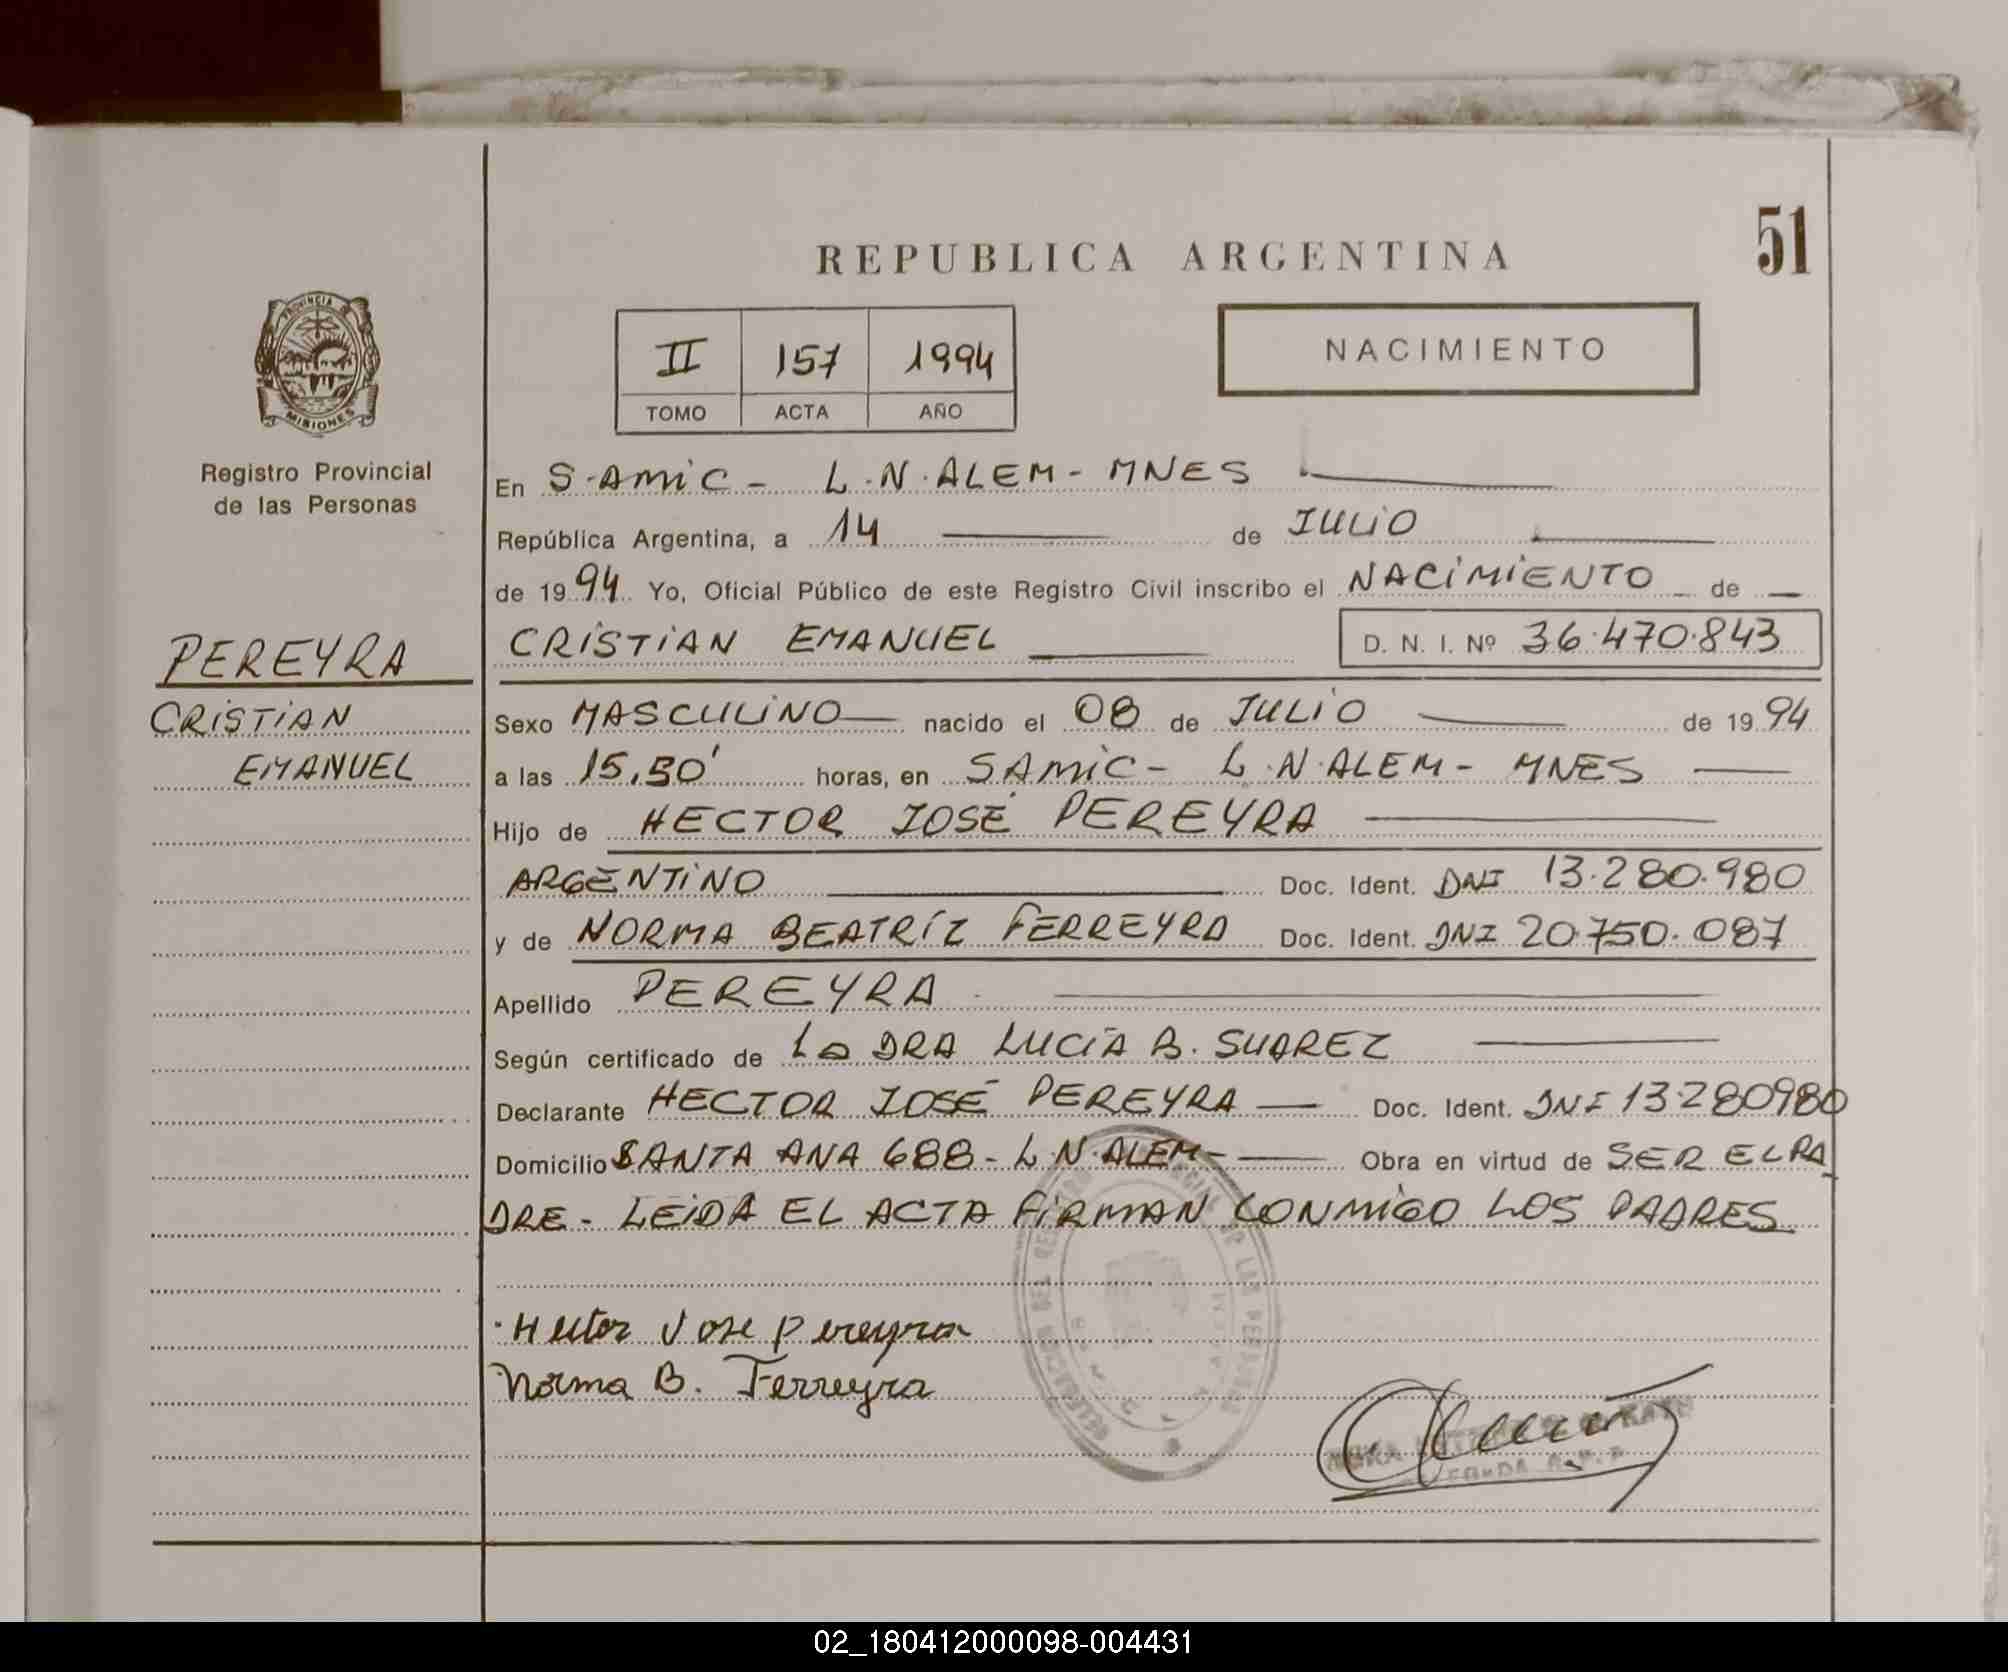 REPUBLICA ARGENTINA
51
PROVINCIA DE
MISIONES
Registro Provincial
de las Personas
II 157 1994
TOMO ACTA AÑO
NACIMIENTO
En S.AMIC - L.N.ALEM - MNES
República Argentina, a 14 de JULIO
de 1994 Yo, Oficial Público de este Registro Civil inscribo el NACIMIENTO de
CRISTIAN EMANUEL D. N. I. Nº 36.470.843
PEREYRA
CRISTIAN
EMANUEL
Sexo MASCULINO nacido el 08 de JULIO de 1994
a las 15,50' horas, en SAMIC - L.N.ALEM - MNES
Hijo de HECTOR JOSÉ PEREYRA
ARGENTINO Doc. Ident. DNI 13.280.980
y de NORMA BEATRÍZ FERREYRA Doc. Ident. DNI 20.750.087
Apellido PEREYRA
Según certificado de La DRA LUCÍA B. SUAREZ
Declarante HECTOR JOSÉ PEREYRA Doc. Ident. DNI 13.280980
Domicilio SANTA ANA 688 - L.N.ALEM - Obra en virtud de SER EL PA
DRE - LEIDA EL ACTA FIRMAN CONMIGO LOS PADRES
Hector Jose Pereyra
Norma B. Ferreyra
02_180412000098-004431